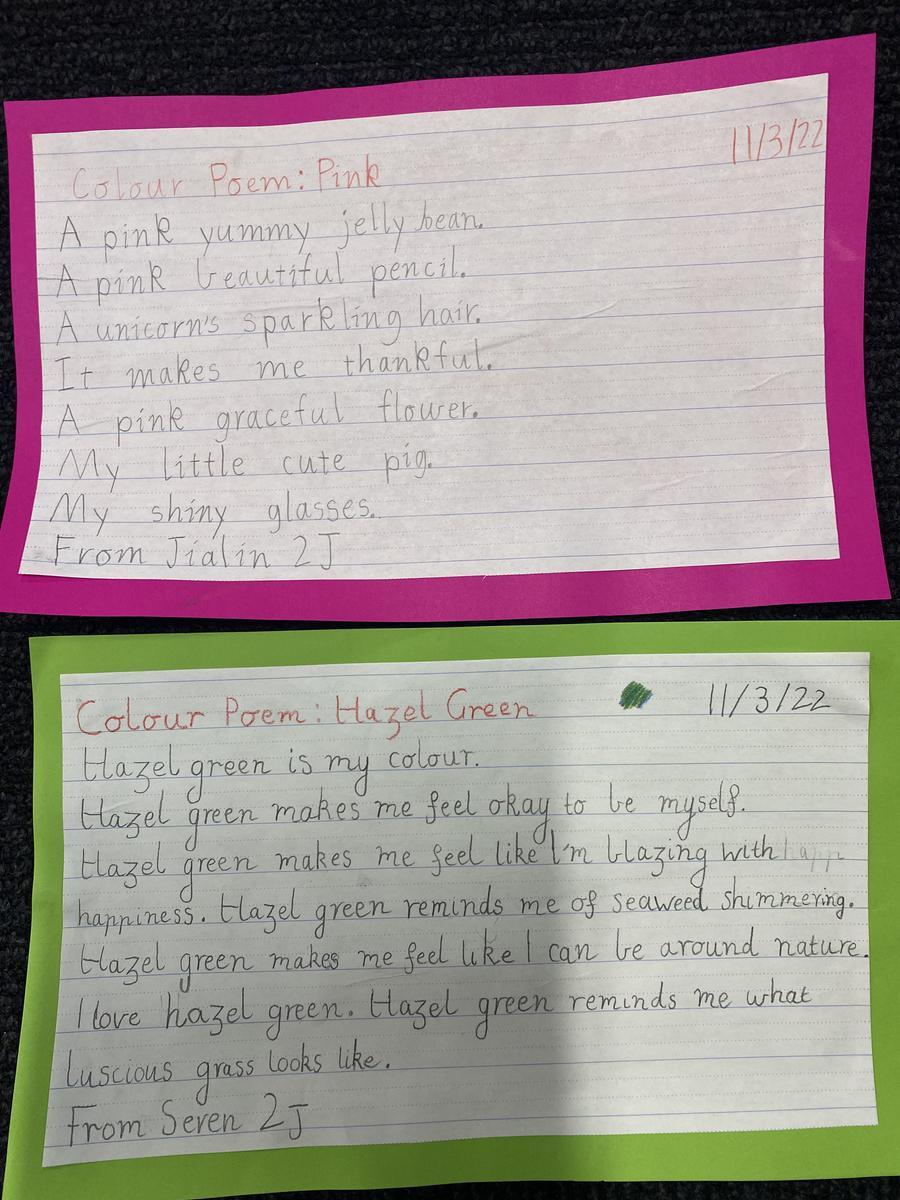 11/3/22
Colour Poem: Pink
A pink yummy jelly bean.
A pink beautiful pencil.
A unicorn's sparkling hair.
It makes me thankful.
A pink graceful flower.
My little cute pig.
My shiny glasses.
From Jialin 2J
Colour Poem: Hazel Green 11/3/22
Hazel green is my colour.
Hazel green makes me feel okay to be myself.
Hazel green makes me feel like I'm blazing with happ
happiness. Hazel green reminds me of seaweed shimmering.
Hazel green makes me feel like I can be around nature.
I love hazel green. Hazel green reminds me what
luscious grass looks like.
From Seven 2J